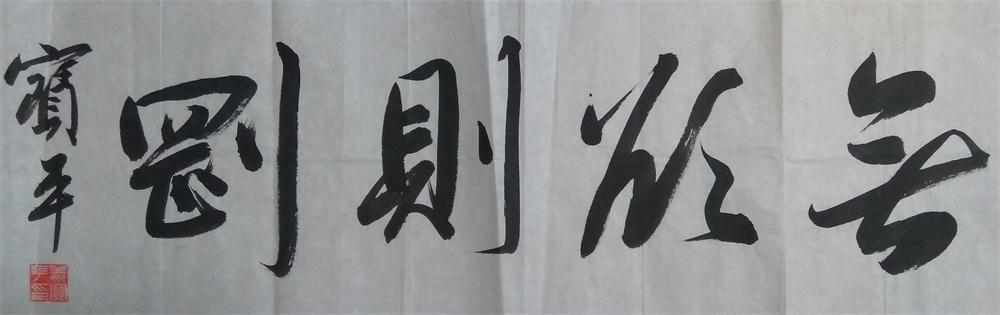 無欲則剛
寶平